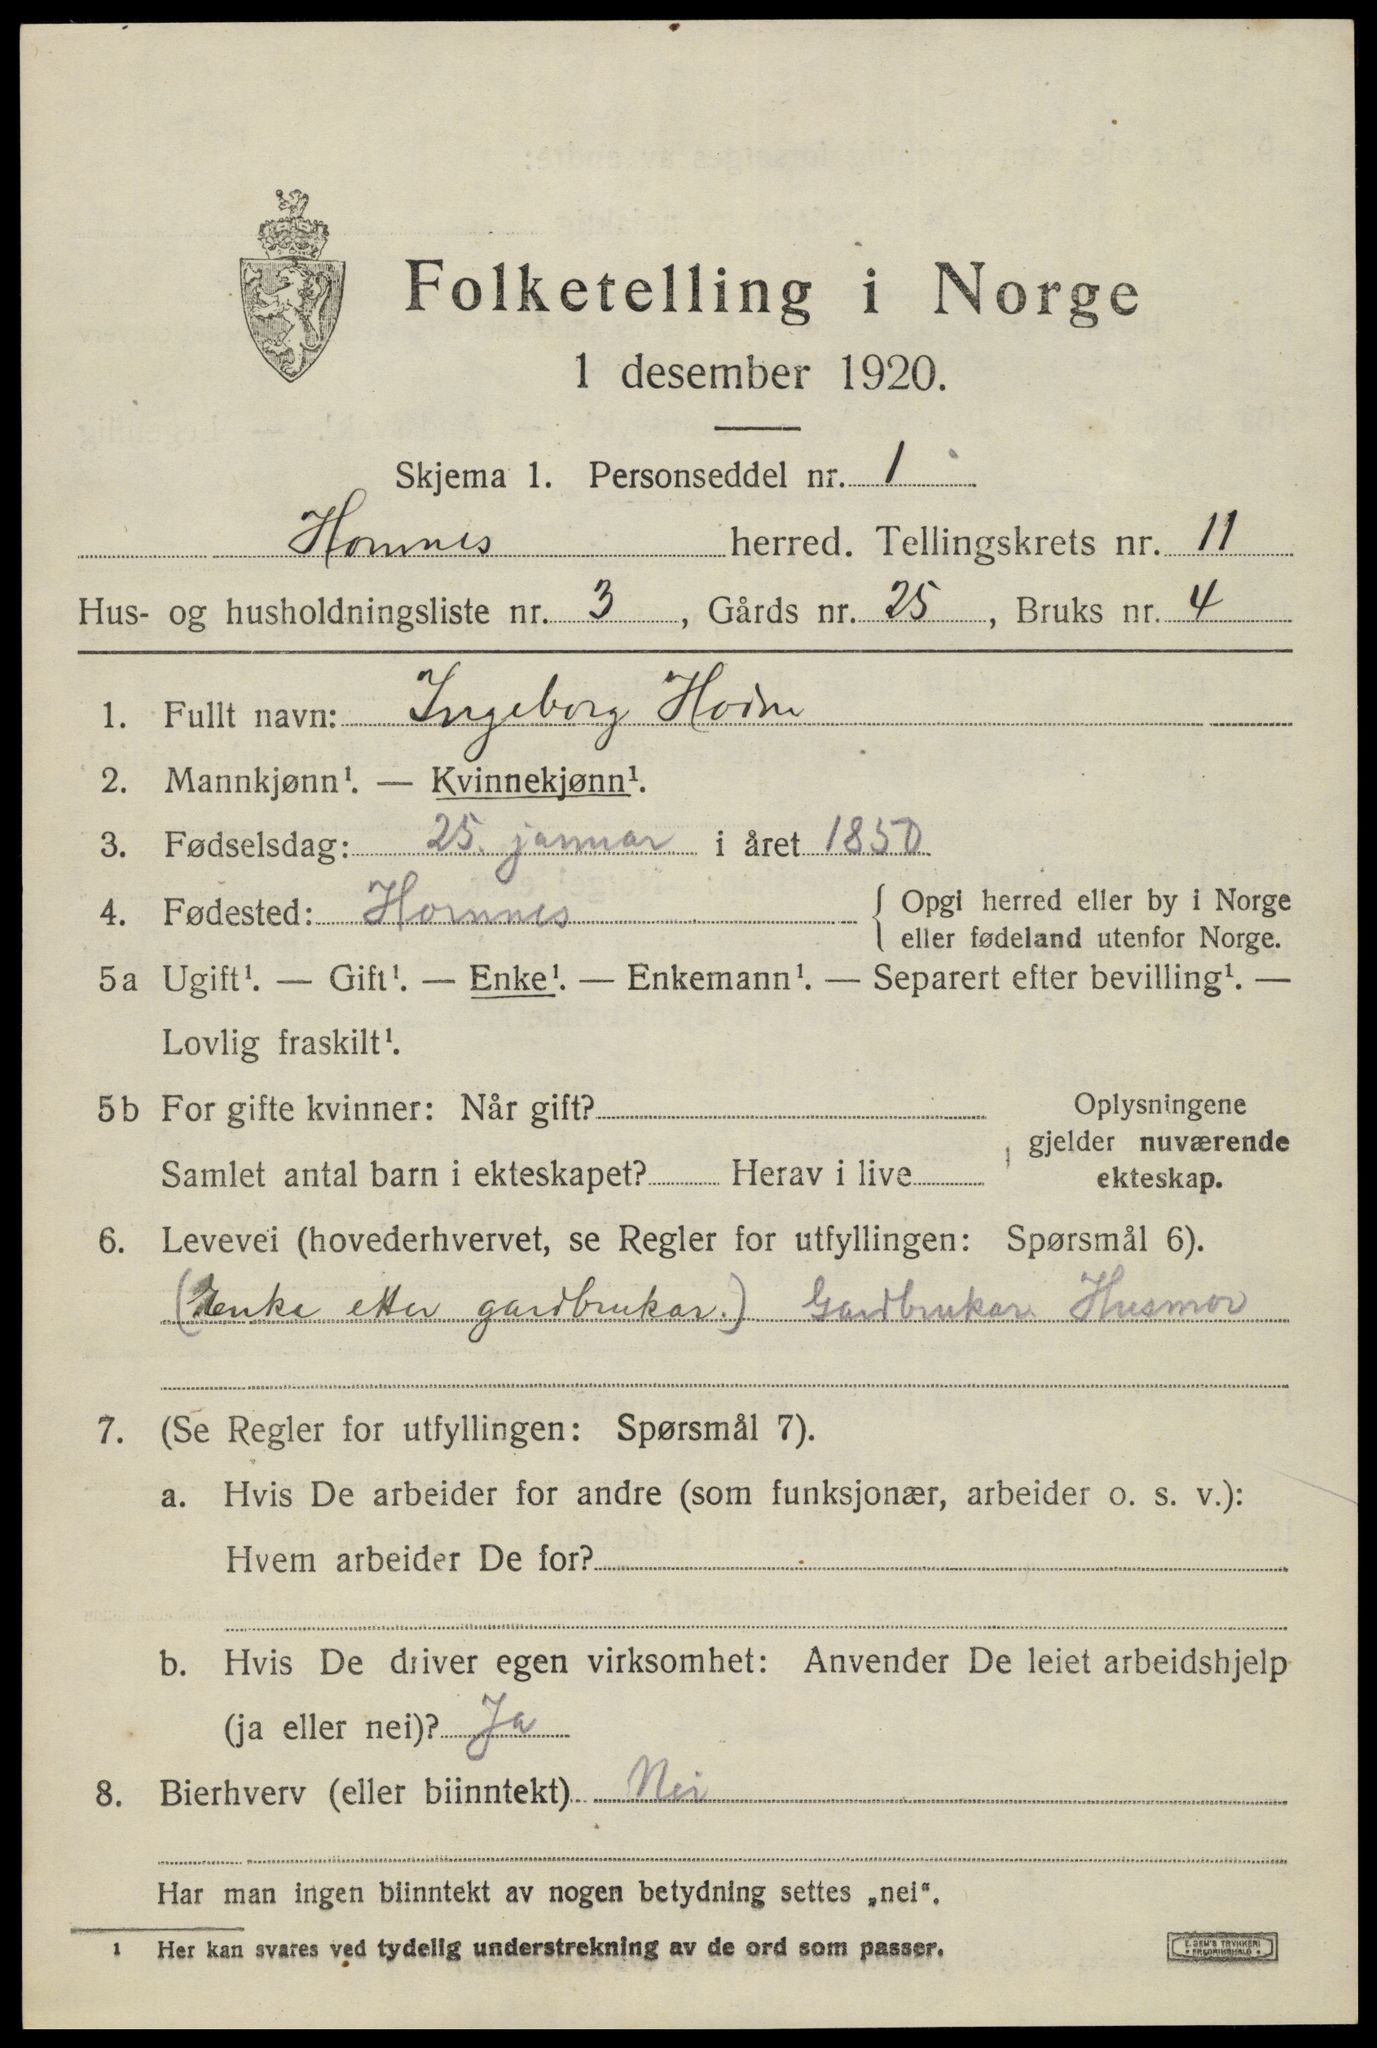 Folketelling i Norge
1 desember 1920.
Skjema 1. Personseddel nr. 1
Hornnes herred. Tellingskrets nr. 11
Hus- og husholdningsliste nr. 3, Gårds nr. 25, Bruks nr. 4
1. Fullt navn: Ingeborg Hodne
2. Mannkjønn¹. — Kvinnekjønn¹.
3. Fødselsdag: 25. januar i året 1850
4. Fødested: Hornnes { Opgi herred eller by i Norge
eller fødeland utenfor Norge.
5a Ugift¹. — Gift¹. — Enke¹. — Enkemann¹. — Separert efter bevilling¹. —
Lovlig fraskilt¹.
5b For gifte kvinner: Når gift?
Samlet antal barn i ekteskapet? Herav i live
Oplysningene
gjelder nuværende
ekteskap.
6. Levevei (hovederhvervet, se Regler for utfyllingen: Spørsmål 6).
(enka etter gardbrukar.) Gardbrukar. Husmor
7. (Se Regler for utfyllingen: Spørsmål 7).
a. Hvis De arbeider for andre (som funksjonær, arbeider o. s. v.):
Hvem arbeider De for?
b. Hvis De driver egen virksomhet: Anvender De leiet arbeidshjelp
(ja eller nei)? Ja
8. Bierhverv (eller biinntekt) Nei
Har man ingen biinntekt av nogen betydning settes „nei“.
1 Her kan svares ved tydelig understrekning av de ord som passer.
E. SEM'S TRYKKERI
FREDRIKSHALD